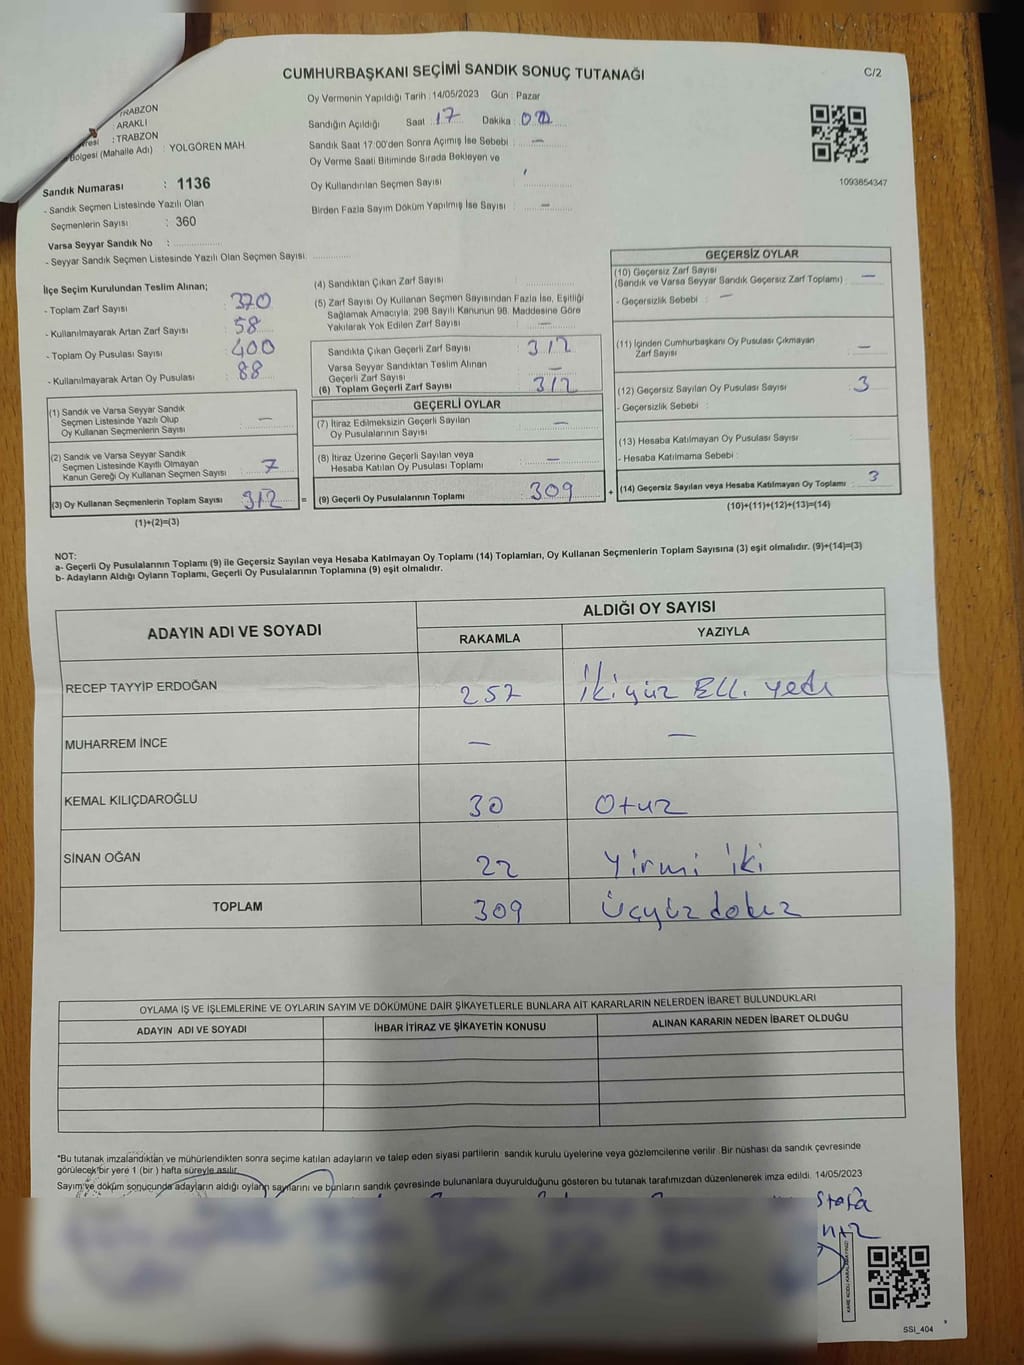 CUMHURBAŞKANI SEÇİMİ SANDIK SONUÇ TUTANAĞI
C/2
TRABZON
: ARAKLI
: TRABZON
Bölgesi (Mahalle Adı) : YOLGÖREN MAH.
Sandık Numarası : 1136
- Sandık Seçmen Listesinde Yazılı Olan
Seçmenlerin Sayısı : 360
Varsa Seyyar Sandık No :
- Seyyar Sandık Seçmen Listesinde Yazılı Olan Seçmen Sayısı:
Oy Vermenin Yapıldığı Tarih : 14/05/2023 Gün : Pazar
Sandığın Açıldığı Saat : 17 Dakika :
Sandık Saat 17:00'den Sonra Açılmış İse Sebebi : —
Oy Verme Saati Bitiminde Sırada Bekleyen ve
Oy Kullandırılan Seçmen Sayısı :
Birden Fazla Sayım Döküm Yapılmış İse Sayısı : —
1093854347
İlçe Seçim Kurulundan Teslim Alınan;
- Toplam Zarf Sayısı : 370
- Kullanılmayarak Artan Zarf Sayısı : 58
- Toplam Oy Pusulası Sayısı : 400
- Kullanılmayarak Artan Oy Pusulası : 88
(1) Sandık ve Varsa Seyyar Sandık
Seçmen Listesinde Yazılı Olup
Oy Kullanan Seçmenlerin Sayısı : —
(2) Sandık ve Varsa Seyyar Sandık
Seçmen Listesinde Kayıtlı Olmayan
Kanun Gereği Oy Kullanan Seçmen Sayısı : 7
(3) Oy Kullanan Seçmenlerin Toplam Sayısı : 312 =
(1)+(2)=(3)
(4) Sandıktan Çıkan Zarf Sayısı :
(5) Zarf Sayısı Oy Kullanan Seçmen Sayısından Fazla İse, Eşitliği
Sağlamak Amacıyla, 298 Sayılı Kanunun 98. Maddesine Göre
Yakılarak Yok Edilen Zarf Sayısı : —
Sandıkta Çıkan Geçerli Zarf Sayısı : 312
Varsa Seyyar Sandıktan Teslim Alınan
Geçerli Zarf Sayısı : —
(6) Toplam Geçerli Zarf Sayısı : 312
GEÇERLİ OYLAR
(7) İtiraz Edilmeksizin Geçerli Sayılan
Oy Pusulalarının Sayısı : —
(8) İtiraz Üzerine Geçerli Sayılan veya
Hesaba Katılan Oy Pusulası Toplamı : —
(9) Geçerli Oy Pusulalarının Toplamı : 309 +
GEÇERSİZ OYLAR
(10) Geçersiz Zarf Sayısı
(Sandık ve Varsa Seyyar Sandık Geçersiz Zarf Toplamı) : —
- Geçersizlik Sebebi : —
(11) İçinden Cumhurbaşkanı Oy Pusulası Çıkmayan
Zarf Sayısı : —
(12) Geçersiz Sayılan Oy Pusulası Sayısı : 3
- Geçersizlik Sebebi :
(13) Hesaba Katılmayan Oy Pusulası Sayısı :
- Hesaba Katılmama Sebebi :
(14) Geçersiz Sayılan veya Hesaba Katılmayan Oy Toplamı : 3
(10)+(11)+(12)+(13)=(14)
NOT:
a- Geçerli Oy Pusulalarının Toplamı (9) ile Geçersiz Sayılan veya Hesaba Katılmayan Oy Toplamı (14) Toplamları, Oy Kullanan Seçmenlerin Toplam Sayısına (3) eşit olmalıdır. (9)+(14)=(3)
b- Adayların Aldığı Oyların Toplamı, Geçerli Oy Pusulalarının Toplamına (9) eşit olmalıdır.
ADAYIN ADI VE SOYADI ALDIĞI OY SAYISI
RAKAMLA YAZIYLA
RECEP TAYYİP ERDOĞAN 257 İkiyüz Elli yedi
MUHARREM İNCE — —
KEMAL KILIÇDAROĞLU 30 Otuz
SİNAN OĞAN 22 Yirmi iki
TOPLAM 309 Üçyüz dokuz
OYLAMA İŞ VE İŞLEMLERİNE VE OYLARIN SAYIM VE DÖKÜMÜNE DAİR ŞİKAYETLERLE BUNLARA AİT KARARLARIN NELERDEN İBARET BULUNDUKLARI
ADAYIN ADI VE SOYADI İHBAR İTİRAZ VE ŞİKAYETİN KONUSU ALINAN KARARIN NEDEN İBARET OLDUĞU
*Bu tutanak imzalandıktan ve mühürlendikten sonra seçime katılan adayların ve talep eden siyasi partilerin sandık kurulu üyelerine veya gözlemcilerine verilir. Bir nüshası da sandık çevresinde
görülecek bir yere 1 (bir) hafta süreyle asılır.
Sayım ve döküm sonucunda adayların aldığı oyların sayılarını ve bunların sandık çevresinde bulunanlara duyurulduğunu gösteren bu tutanak tarafımızdan düzenlenerek imza edildi. 14/05/2023
SSI_404